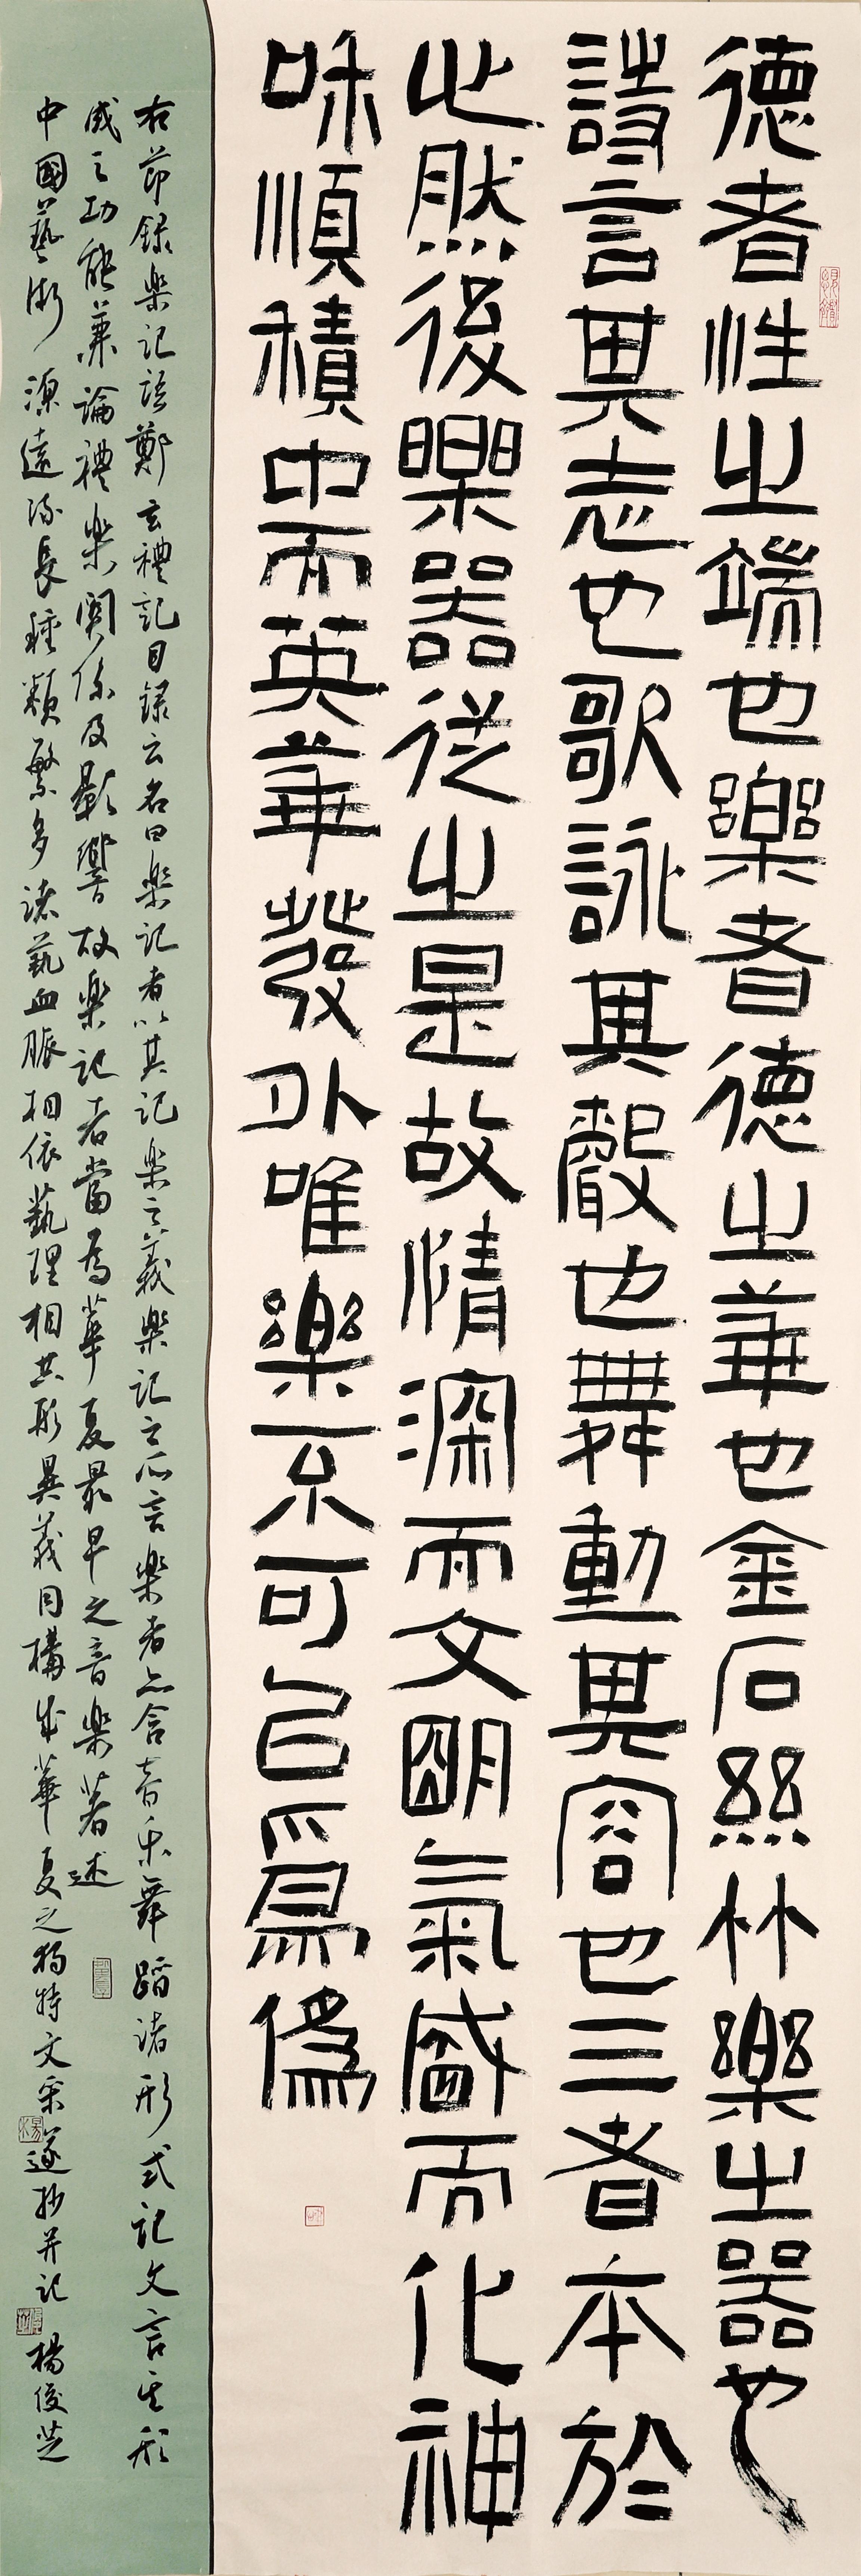 德者性之端也樂者德之華也金石絲竹樂之器也
詩言其志也歌詠其聲也舞動其容也三者本於
心然後樂器從之是故情深而文明氣盛而化神
咊順積中而英華發外唯樂不可以爲僞
右節錄樂記語鄭玄禮記目錄云名曰樂記者以其記樂之義樂記之所言樂者亦含音樂舞蹈諸形式記文言其形
成之功能兼論禮樂關係及影響故樂記者當為華夏最早之音樂著述
中國藝術源遠流長種類繁多諸藝血脈相依藝理相共形異義同構成華夏之獨特文采遂抄并記 楊俊芝